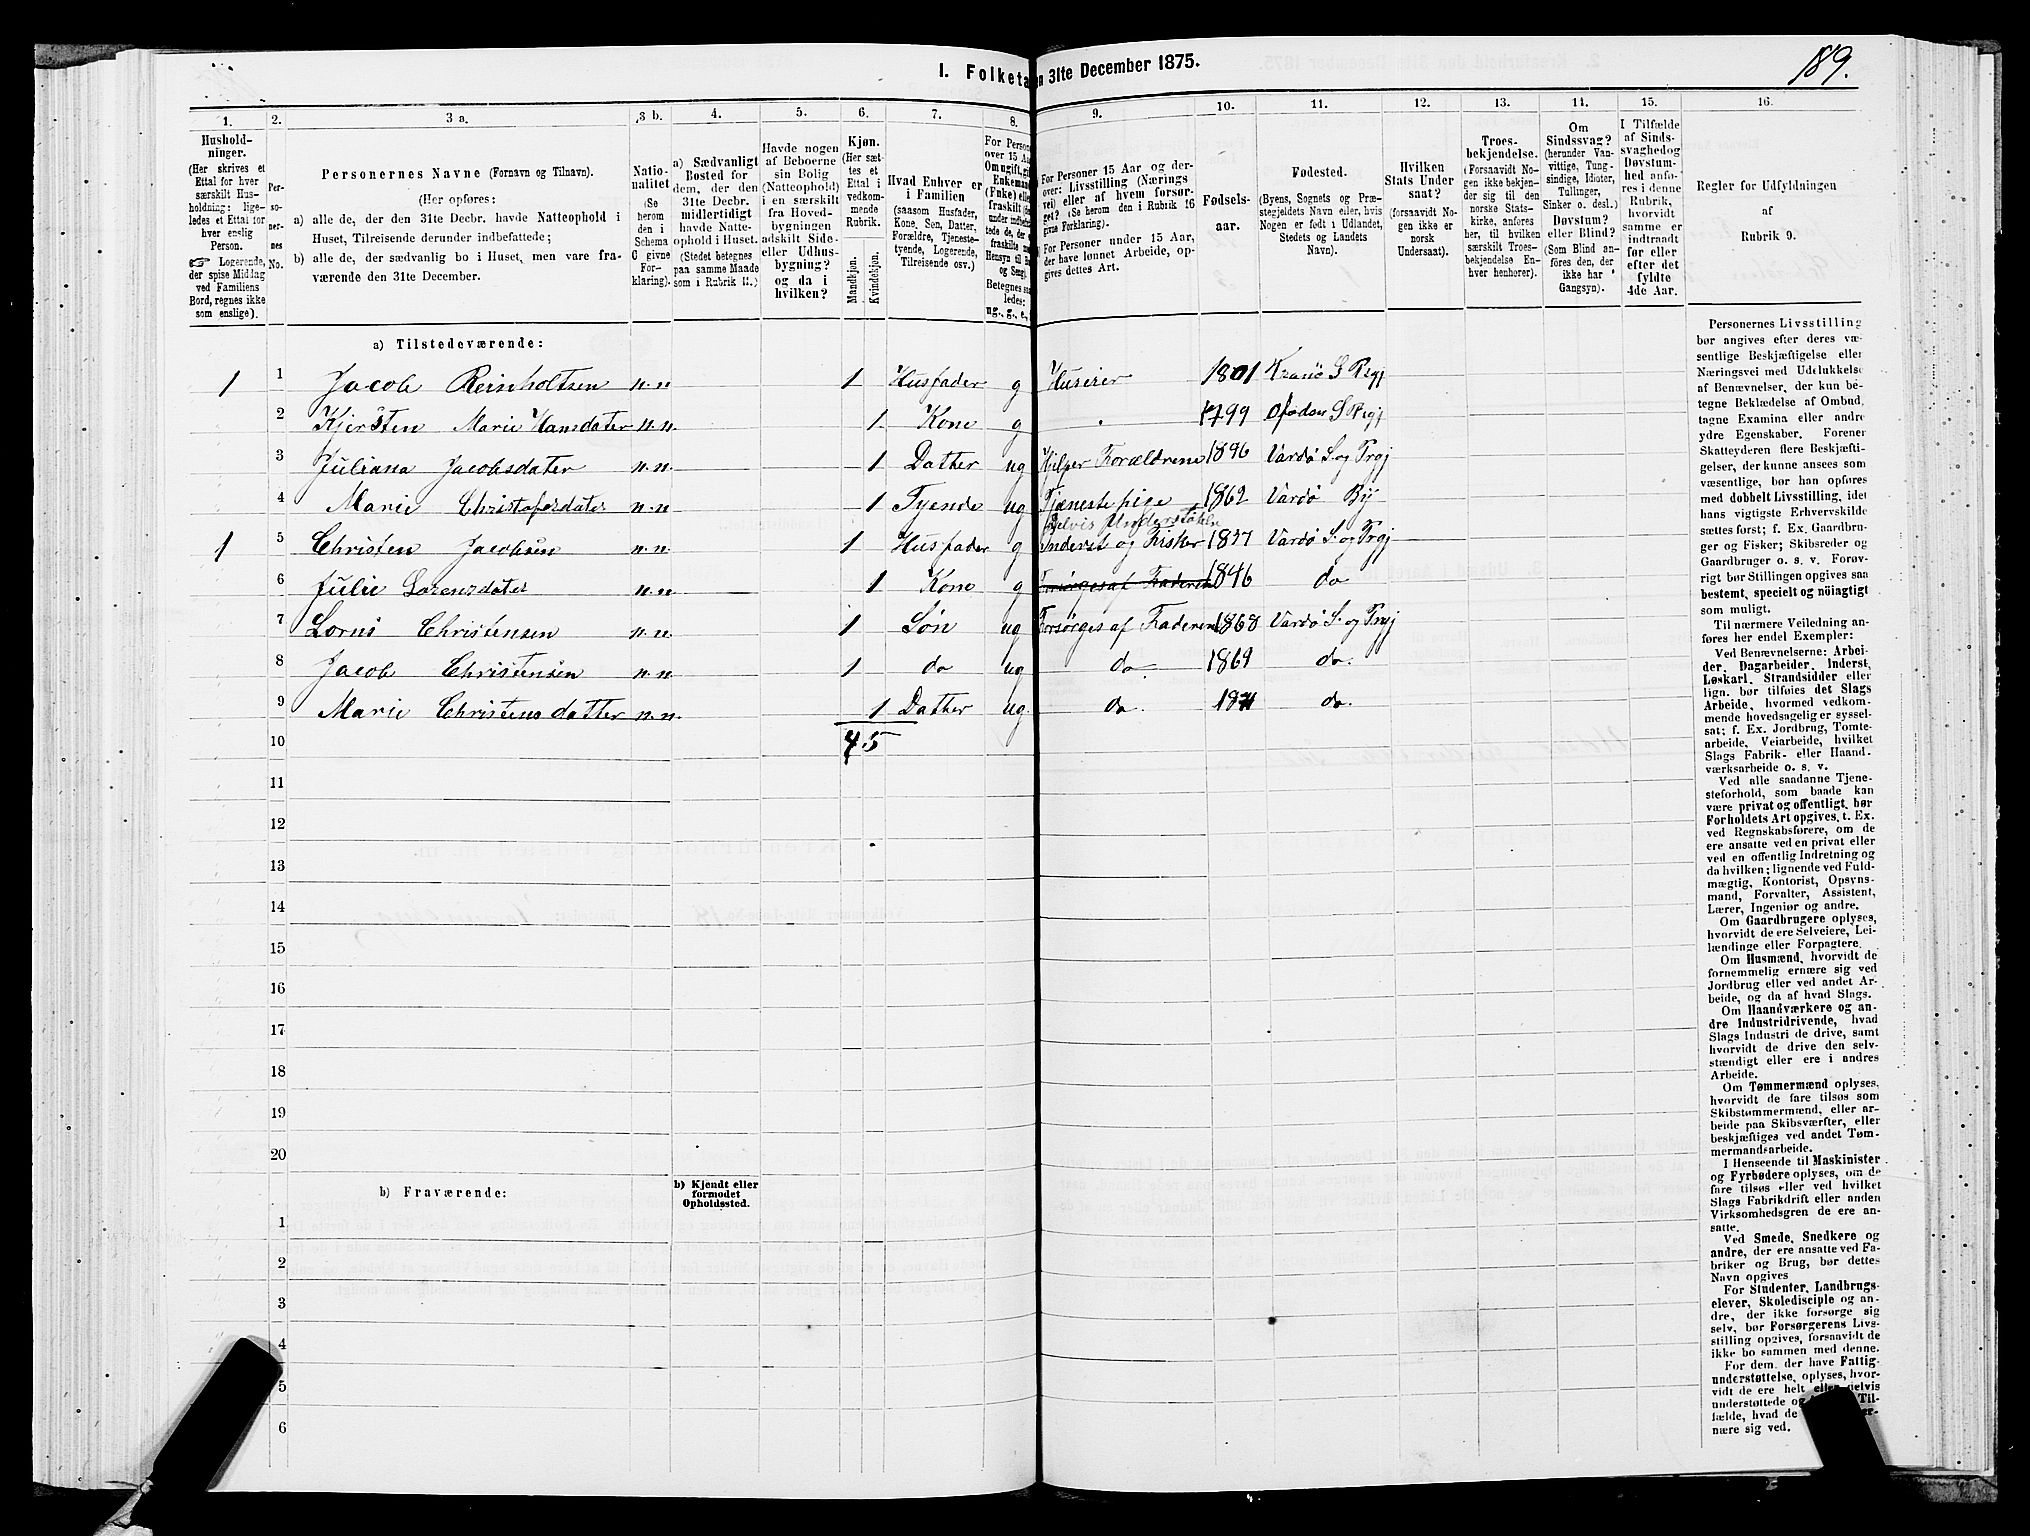 I. Folketa n 31te December 1875.
189.
1. 2. 3 a. 3 b. 4. 5. 6. 7. 8. 9. 10. 11. 12. 13. 14. 15. 16.
Hushold-
ninger.
(Her skrives et
Ettal for hver
særskilt Hus-
holdning: lige-
ledes et Ettal for
hver enslig
Person.
☞ Logerende,
der spise Middag
ved Familiens
Bord, regnes ikke
som enslige).
Per-
so-
ner-
nes
No.
Personernes Navne (Fornavn og Tilnavn).
(Her opføres:
a) alle de, der den 31te Decbr. havde Natteophold i
Huset, Tilreisende derunder indbefattede;
b) alle de, der sædvanlig bo i Huset, men vare fra-
værende den 31te December.
Natio-
nalitet
(Se
herom
den i
Schema
C givne
For-
klaring).
a) Sædvanligt
Bosted for
dem, der den
31te Decbr.
midlertidigt
havde Natte-
ophold i Huset.
(Stedet betegnes
paa samme Maade
som i Rubrik 11.)
Havde nogen
af Beboerne
sin Bolig
(Natteophold)
i en særskilt
fra Hoved-
bygningen
adskilt Side-
eller Udhus-
bygning?
og da i
hvilken?
Kjøn.
(Her sæt-
tes et
Ettal i
vedkom-
mende
Rubrik.
Mandkjøn.
Kvindekjøn.
Hvad Enhver er
i Familien
(saasom Husfader,
Kone, Søn, Datter,
Forældre, Tjeneste-
tyende, Logerende,
Tilreisende osv.)
For Person
over 15 Aa
Om ugift, gi
Enkeman
(Enke) elle
fraskilt
Betegnes saa
ledes:
ug., g., e.,
For Personer 15 Aar og der-
over: Livsstilling (Nærings-
vei) eller af hvem forsør-
get? (Se herom den i Rubrik 16
givne Forklaring).
For Personer under 15 Aar,
der have lønnet Arbeide, op-
gives dettes Art.
Fødsels-
aar.
Fødested.
(Byens, Sognets og Præ-
stegjeldets Navn eller, hvis
Nogen er født i Udlandet,
Stedets og Landets
Navn).
Hvilken
Stats Under
saat?
(forsaavidt No-
gen ikke er
norsk
Undersaat).
Troes-
bekjendelse.
(Forsaavidt No-
gen ikke bekjen-
der sig til den
norske Stats-
kirke, anføres
her, til hvilken
særskilt Troes-
bekjendelse En-
hver henhører).
Om
Sindssvag?
(herunder Van-
vittige, Tung-
sindige, Idioter,
Tullinger,
Sinker o. desl.)
Døvstum?
eller Blind?
(Som Blind an-
føres den, der
ikke har
Gangsyn).
I Tilfælde
af Sinds-
svaghed og
Døvstum-
hed anfø-
res i denne
Rubrik,
hvorvidt
samme er
indtraadt
før eller
efter det
fyldte
4de Aar.
Regler for Udfyldningen
af
Rubrik 9.
a) Tilstedeværende:
1 1 Jacob Reinholtsen n.n 1 Husfader g Huseier 1801 Kranø S Pregj
2 Kjersten Marie Hansdater n.n. 1 Kone g 1799 Ofoden S Pregj
3 Juliana Jacobsdater n.n. 1 Datter ug Hjelper Forældrene 1846 Vardø S. og Prgj
4 Marie Christofersdater n.n 1 Tyende ug Tjenestepige 1862 Vardø By
delvis Understøttelse
1 5 Christen Jacobsen n.n. 1 Husfader g Inderst og Fisker 1837 Vardø S. og Prgj
6 Julie Lorenzdater n.n. 1 Kone g Forsørges af Faderen 1846 do
7 Lorns Christensen n.n. 1 Søn ug Forsørges af Faderen 1868 Vardø S. og Prgj
8 Jacob Christensen n.n. 1 do ug do 1869 do.
9 Marie Christensdatter n.n. 1 Datter ug. do. 1871 do.
10 4.5
11
12
13
14
15
16
17
18
19
20
b) Fraværende:
b) Kjendt eller
formodet
Opholdssted.
1
2
3
4
5
6
Personernes Livsstilling
bør angives efter deres væ-
sentlige Beskjæftigelse eller
Næringsvei med Udelukkelse
af Benævnelser, der kun be-
tegne Beklædelse af Ombud,
tagne Examina eller andre
ydre Egenskaber. Forener
Skatteyderen flere Beskjæfti-
gelser, der kunne ansees som
væsentlige, bør han opføres
med dobbelt Livsstilling, idet
hans vigtigste Erhvervskilde
sættes først; f. Ex. Gaardbru-
ger og Fisker; Skibsreder og
Gaardbruger o. s. v. Forøv-
rigt bør Stillingen opgives saa
bestemt, specielt og nöiagtigt
som muligt.
Til nærmere Veiledning an-
føres her endel Exempler:
Ved Benævnelserne: Arbei-
der, Dagarbeider, Inderst,
Løskarl, Strandsidder eller
lign. bør tilføies det Slags
Arbeide, hvormed vedkom-
mende hovedsagelig er syssel-
sat; f. Ex. Jordbrug, Tomte-
arbeide, Veiarbeide, hvilket
Slags Fabrik- eller Haand-
værksarbeide o. s. v.
Ved alle saadanne Tjene-
steforhold, som baade kan
være privat og offentligt, bør
Forholdets Art opgives, t. Ex.
ved Regnskabsførere, om de
ere ansatte ved en privat eller
ved en offentlig Indretning og
da hvilken; lignende ved Fuld-
mægtig, Kontorist, Opsyns-
mand, Forvalter, Assistent,
Lærer, Ingeniør og andre.
Om Gaardbrugere oplyses,
hvorvidt de ere Selveiere, Lei-
lændinge eller Forpagtere.
Om Husmænd, hvorvidt de
fornemmelig ernære sig ved
Jordbrug eller ved andet Ar-
beide, og da af hvad Slags.
Om Haandværkere og an-
dre Industridrivende, hvad
Slags Industri de drive, samt
hvorvidt de drive den selv-
stændigt eller ere i andres
Arbeide.
Om Tømmermænd oplyses,
hvorvidt de fare tilsøs som
Skibstømmermænd, eller ar-
beide paa Skibsværfter, eller
beskjæftiges ved andet Tøm-
mermandsarbeide.
I Henseende til Maskinister
og Fyrbødere oplyses, om de
fare tilsøs eller ved hvilket
Slags Fabrikdrift eller anden
Virksomhedsgren de ere an-
satte.
Ved Smede, Snedkere og
andre, der ere ansatte ved Fa-
briker og Brug, bør dettes
Navn opgives
For Studenter, Landbrugs-
elever, Skoledisciple og an-
dre, der ikke forsørge sig
selv, bør Forsørgerens Livs-
stilling opgives, forsaavidt de
ikke bo sammen med denne.
For dem, der have Fattig-
understøttelse, oplyses, hvor-
vidt de ere helt eller delvis
understøttede og Til-
fælde, hvad de er-
nære sig ved.